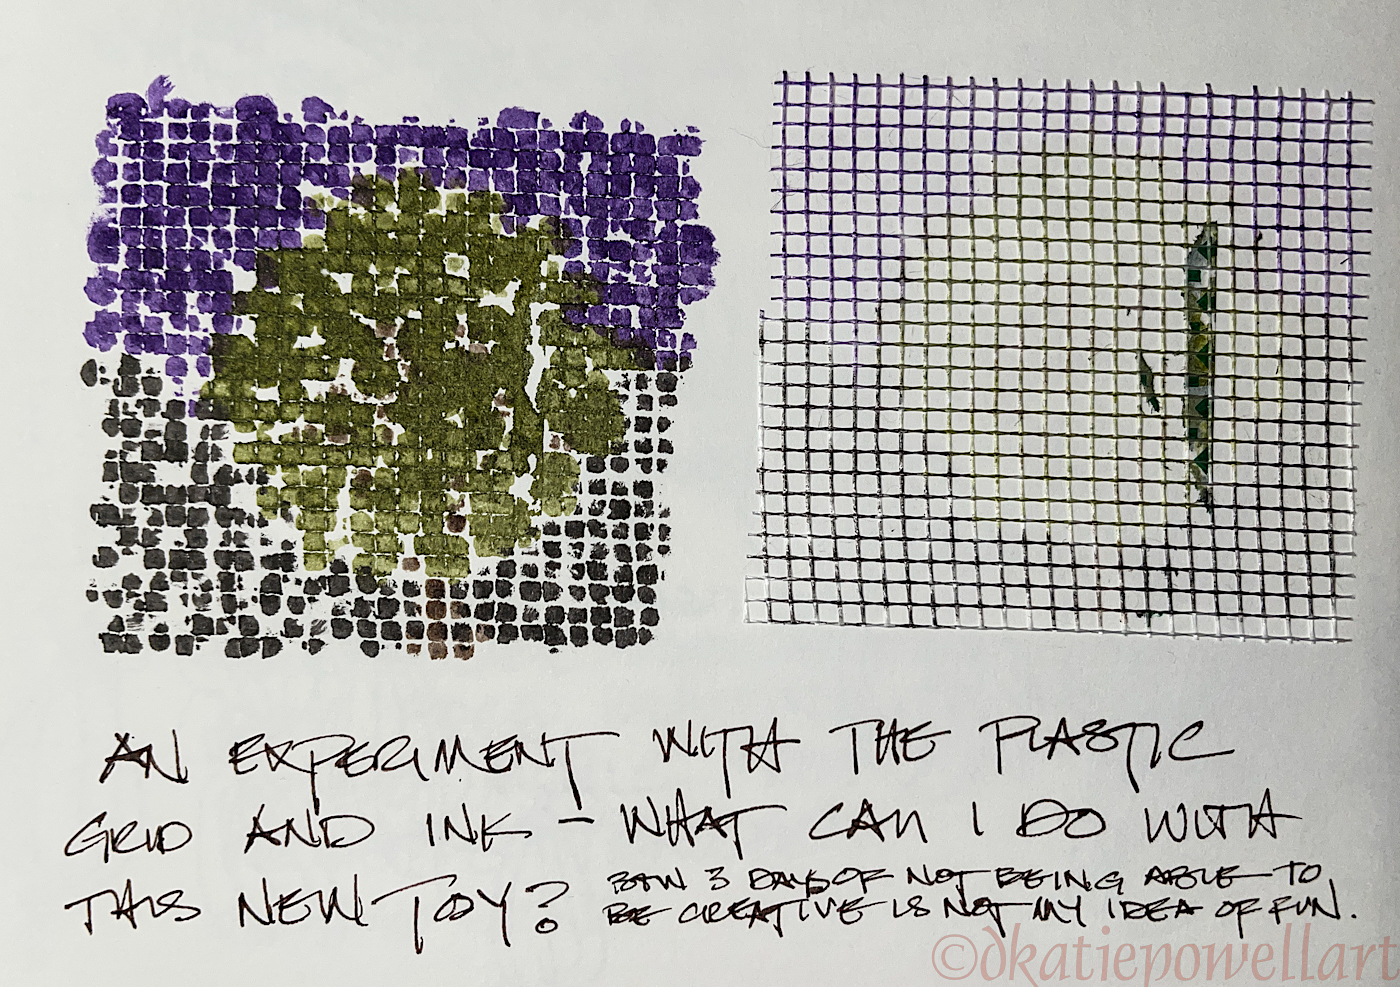 AN EXPERIMENT WITH THE PLASTIC
GRID AND INK – WHAT CAN I DO WITH
THIS NEW TOY?
BTW 3 DAYS OF NOT BEING ABLE TO
BE CREATIVE IS NOT MY IDEA OF FUN.
©dkatiepowellart